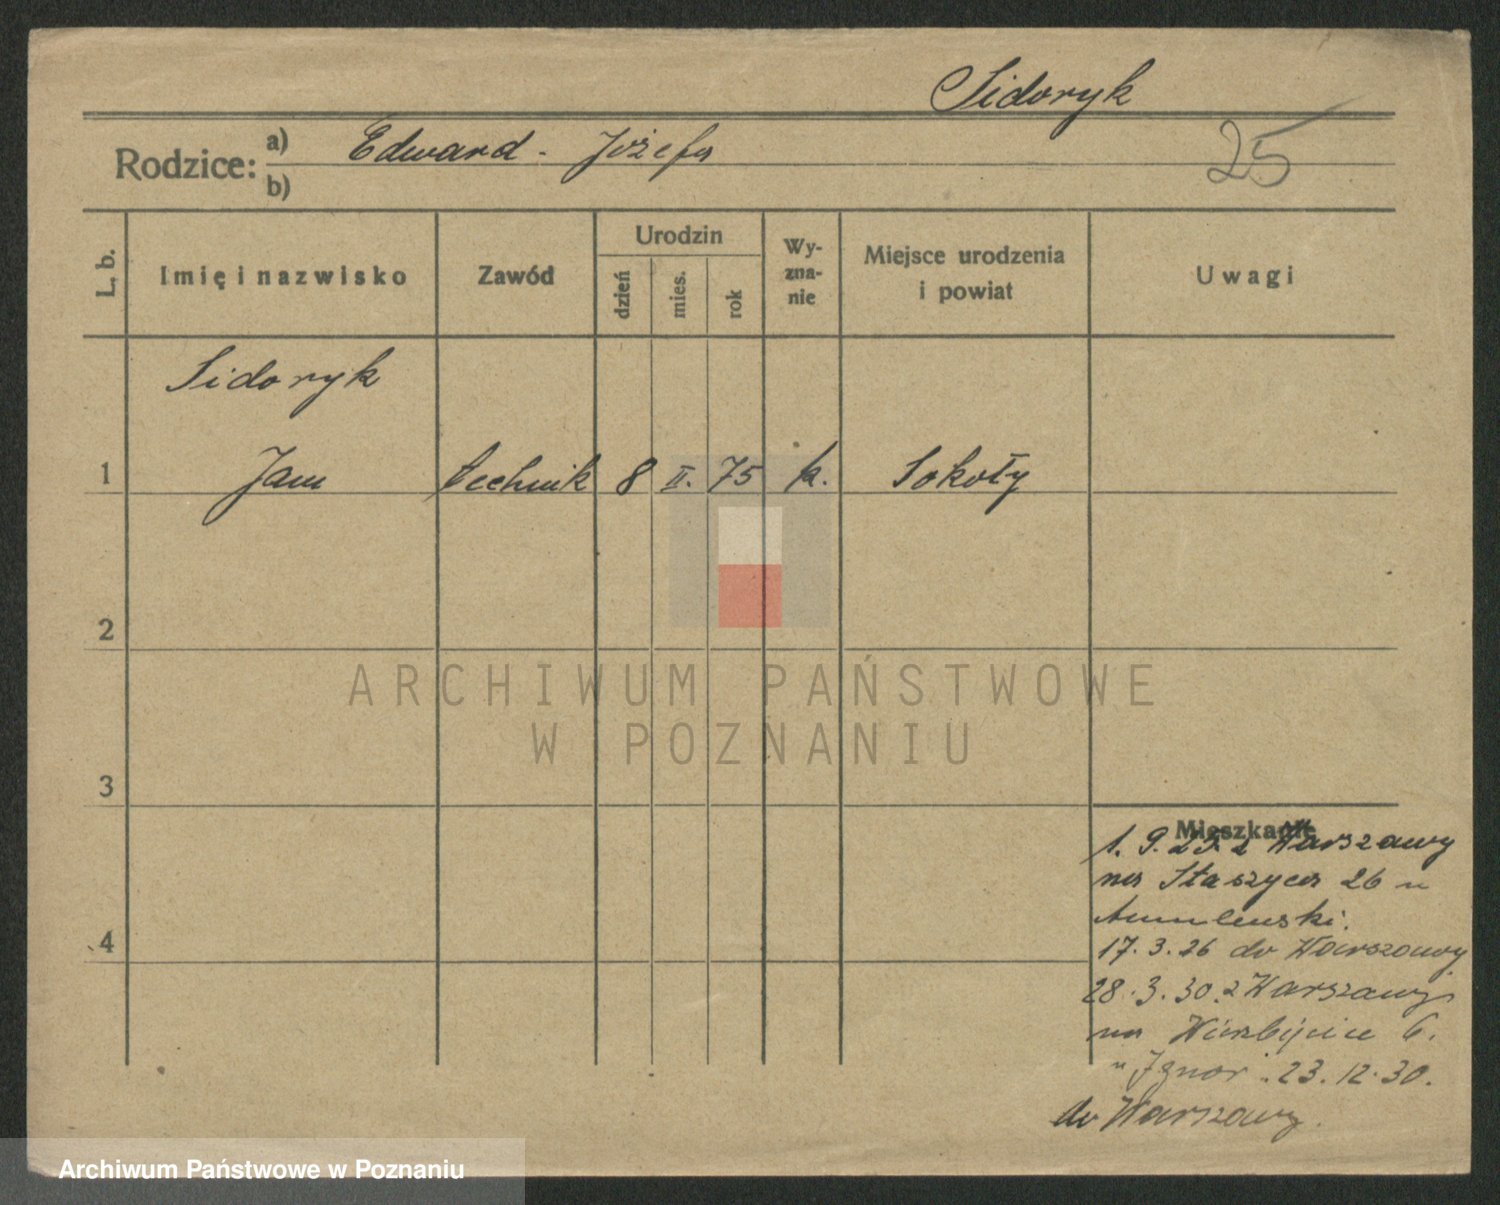 Sidoryk
Rodzice: a) Edward - Józefa
25
b)
L. b.
Imię i nazwisko
Zawód
Urodzin
dzień
mies.
rok
Wy-
zna-
nie
Miejsce urodzenia
i powiat
Uwagi
Sidoryk
1 Jan technik 8 II. 75 k. Sokoły
2
ARCHIWUM PAŃSTWOWE
W POZNANIU
3
Mieszkanie
1. 9. 25. z Warszawy
na Staszyca 26 u
4
17. 3. 26 do Warszawy
28. 3. 30. z Warszawy
na Wierzbięcice 6.
23. 12. 30.
do Warszawy.
Archiwum Państwowe w Poznaniu